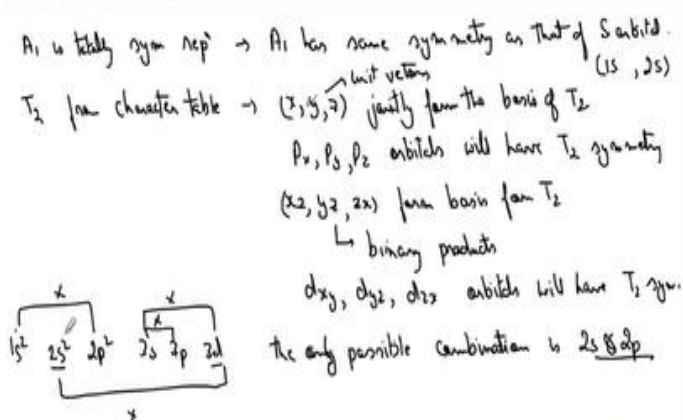 A₁ is totally sym repⁿ → A₁ has same symmetry as that of S orbital.
(1s, 2s)
unit vectors
T₂ from character table → (x, y, z) jointly form the basis of T₂
Pₓ, Pᵧ, P_z orbitals will have T₂ symmetry
(xz, yz, zx) form basis for T₂
↳ binary products
dxy, dyz, dzx orbitals will have T₂ sym.
x x
x
1s² 2s² 2p² 3s 3p 3d the only possible combination is 2s & 2p
x